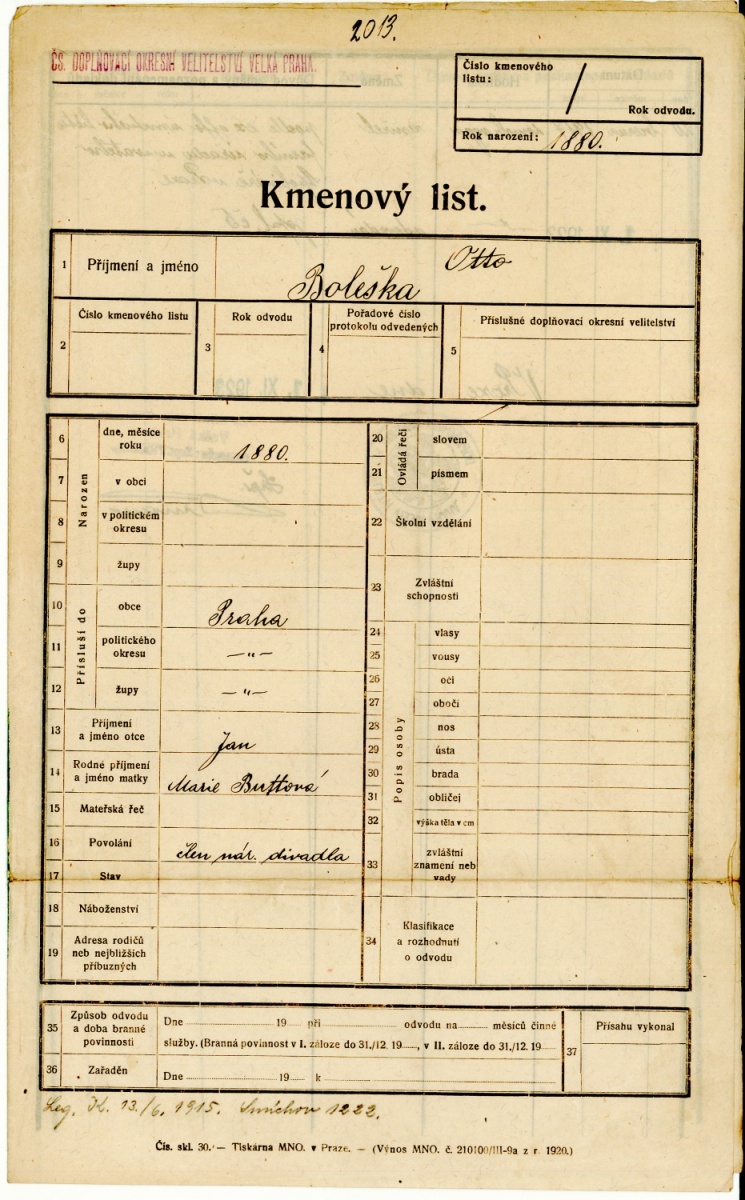 2013.
ČS. DOPLŇOVACÍ OKRESNÍ VELITELSTVÍ VELKÁ PRAHA.
Číslo kmenového
listu:
/
Rok odvodu.
Rok narození: 1880.
Kmenový list.
1 Příjmení a jméno Boleška Otto
2 Číslo kmenového listu
3 Rok odvodu
4 Pořadové číslo
protokolu odvedených
5 Příslušné doplňovací okresní velitelství
Narozen
6 dne, měsíce
roku 1880.
7 v obci
8 v politickém
okresu
9 župy
Přísluší do
10 obce Praha
11 politického
okresu —„—
12 župy —„—
13 Příjmení
a jméno otce Jan
14 Rodné příjmení
a jméno matky Marie Buttová
15 Mateřská řeč
16 Povolání člen nár. divadla
17 Stav
18 Náboženství
19 Adresa rodičů
neb nejbližších
příbuzných
Ovládá řeči
20 slovem
21 písmem
22 Školní vzdělání
23 Zvláštní
schopnosti
Popis osoby
24 vlasy
25 vousy
26 oči
27 obočí
28 nos
29 ústa
30 brada
31 obličej
32 výška těla v cm
33 zvláštní
znamení neb
vady
34 Klasifikace
a rozhodnutí
o odvodu
35 Způsob odvodu
a doba branné
povinnosti
Dne 19 při odvodu na měsíců činné
služby. (Branná povinnost v I. záloze do 31./12. 19, v II. záloze do 31./12. 19
36 Zařaděn
Dne 19 k
37 Přísahu vykonal
Leg. K. 13./6. 1915. Smíchov 1222.
Čís. skl. 30. — Tiskárna MNO. v Praze. — (Výnos MNO. č. 210100/III-9a z r. 1920.)